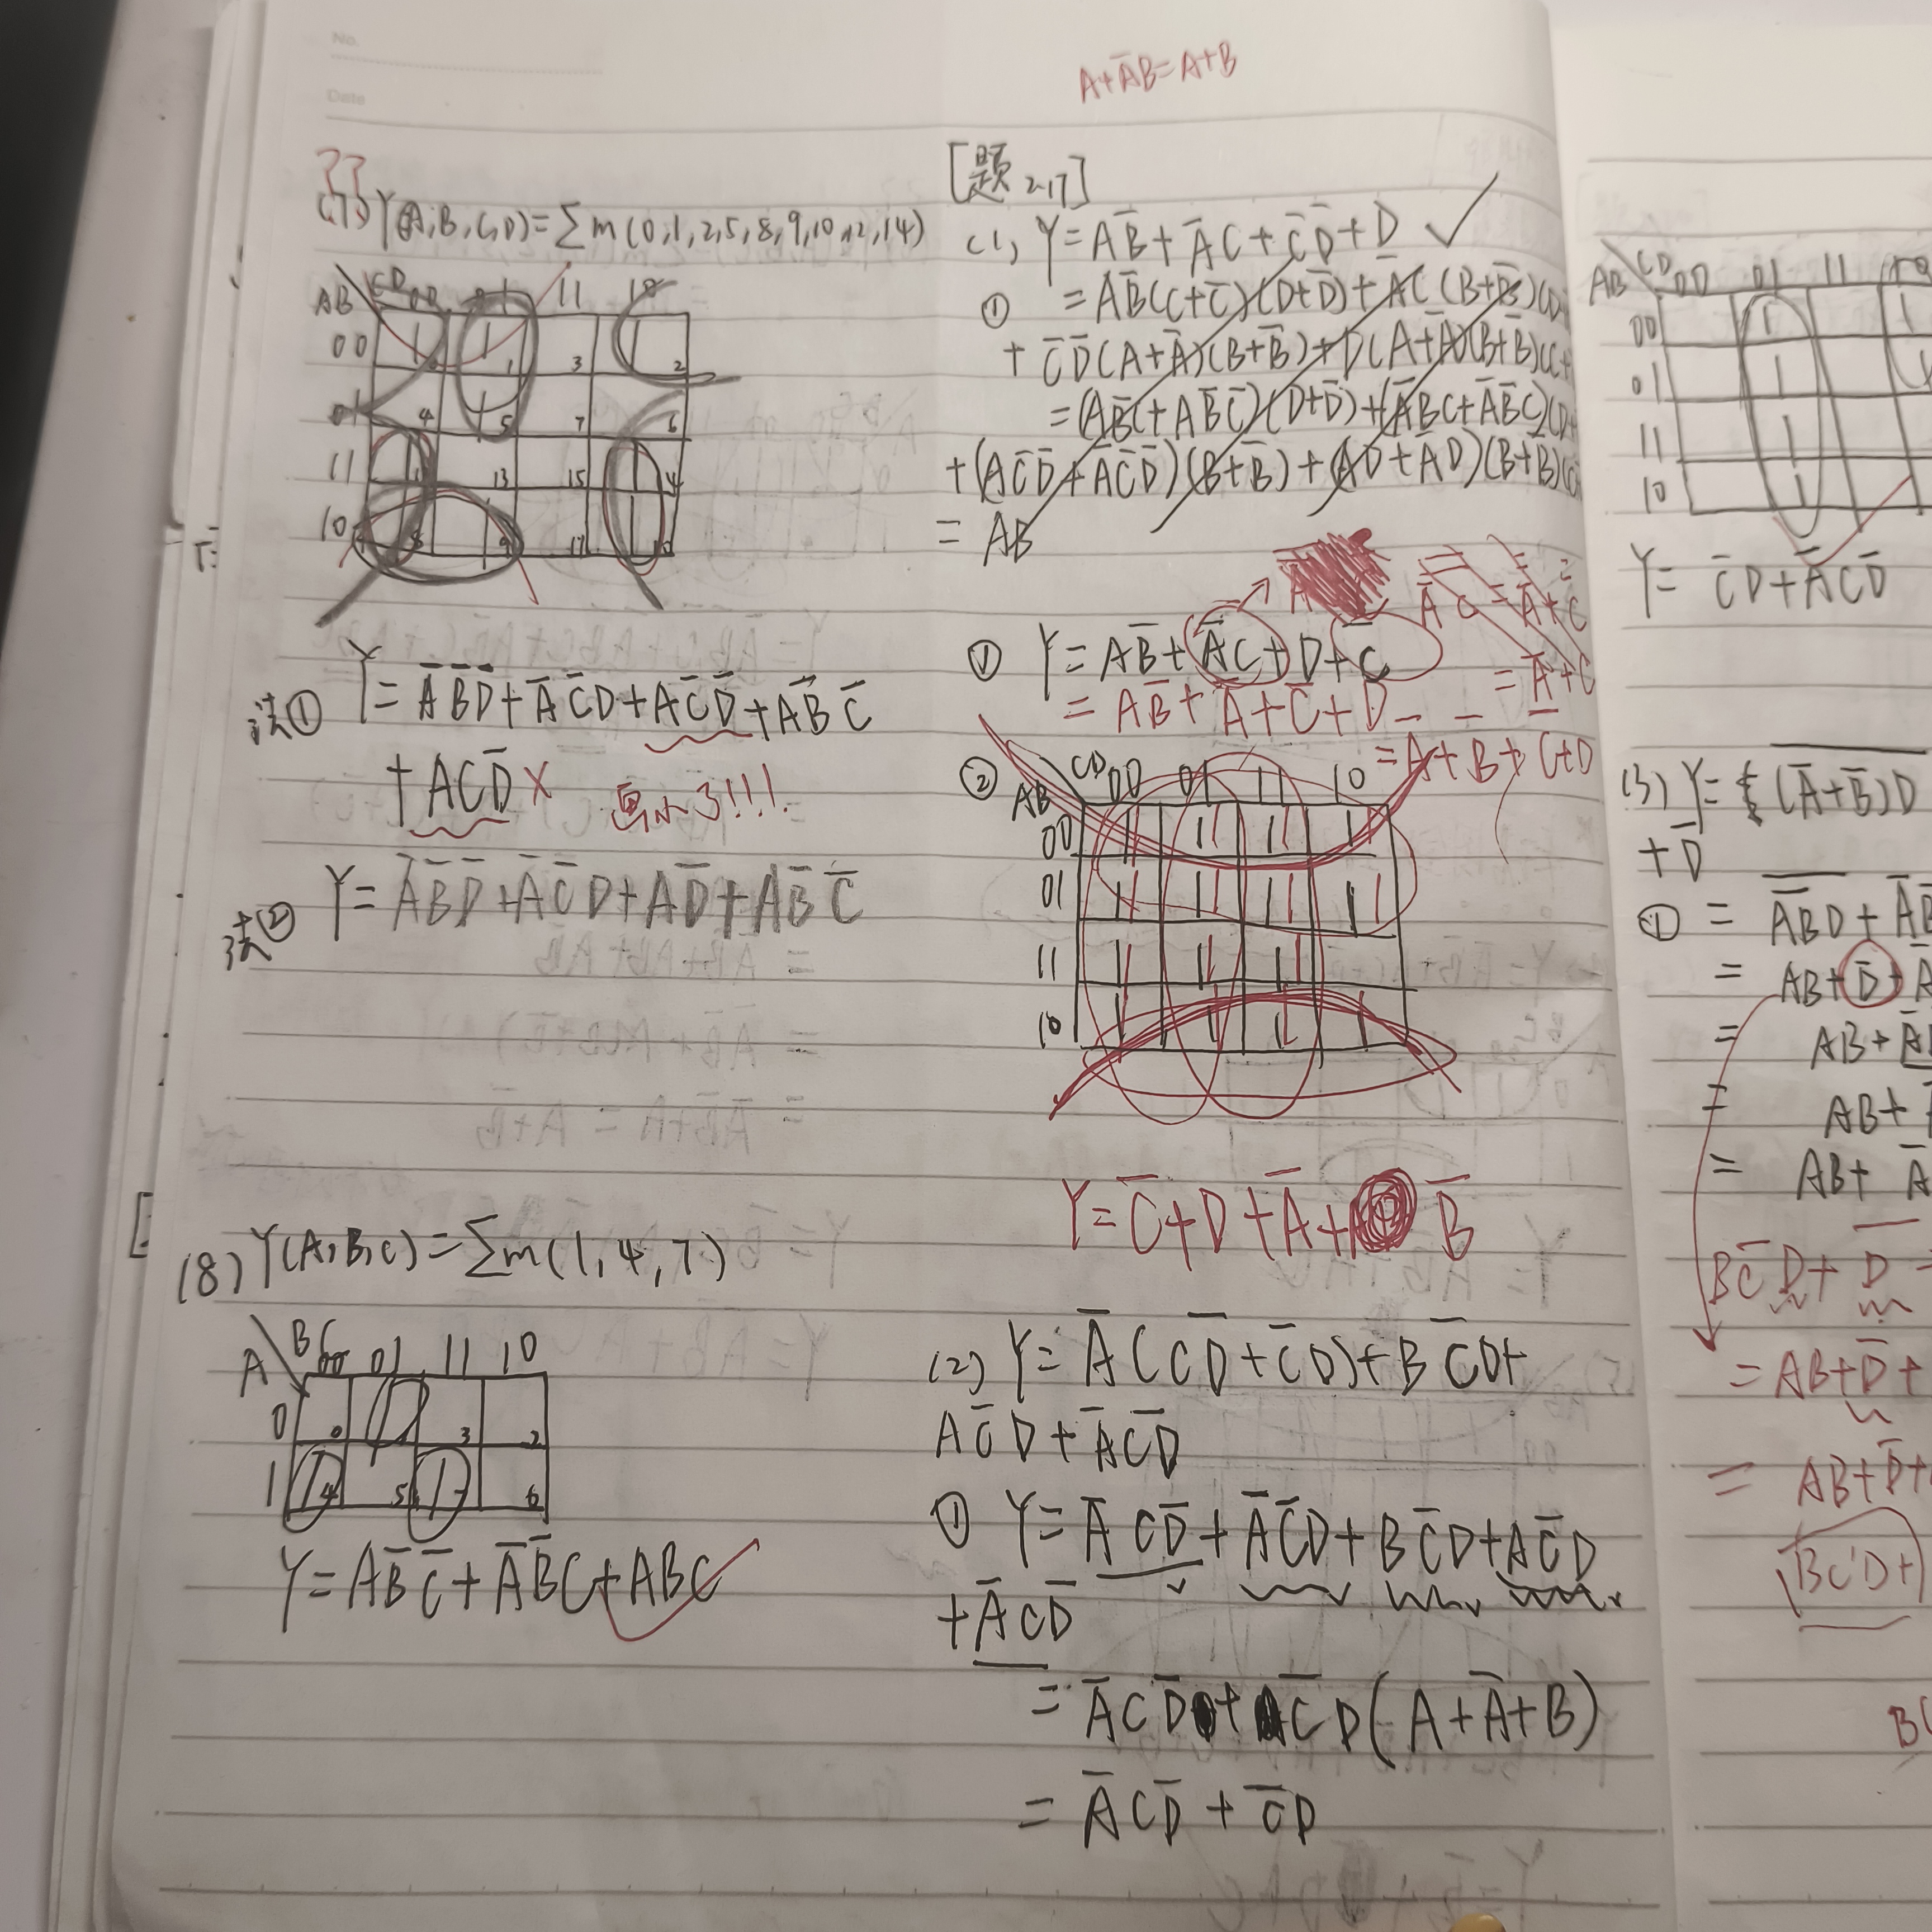 No.
Date
A+A̅B=A+B
??
(7) Y(A,B,C,D)=∑m(0,1,2,5,8,9,10,12,14)
AB CD 00 01 11 10
00 1 0 1 1 3 1 2
01 4 1 5 7 6
11 1 12 13 15 1 14
10 1 8 1 9 11 1 10
法① Y=A̅B̅D̅+A̅C̅D+AC̅D̅+AB̅C̅
+ACD̅ ×
画小了!!!
法② Y=A̅B̅D̅+A̅C̅D+AD̅+AB̅C̅
(8) Y(A,B,C)=∑m(1,4,7)
A BC 00 01 11 10
0 0 1 3 2
1 1 4 5 1 7 6
Y=AB̅C̅+A̅B̅C+ABC
[题2.17]
(1) Y=AB̅+A̅C+C̅D̅+D ✓
① =AB̅(C+C̅)(D+D̅)+A̅C(B+B̅)(D
+C̅D̅(A+A̅)(B+B̅)+D(A+A̅)(B+B̅)(C+
=(AB̅C+AB̅C̅)(D+D̅)+(A̅BC+A̅B̅C)(D+
+(AC̅D̅+A̅C̅D̅)(B+B̅)+(AD+A̅D)(B+B̅)(
=AB
① Y=AB̅+A̅C+D+C̅
=A̅+C̅
=AB̅+A̅+C̅+D
=A̅+B̅+C̅+D
② AB CD 00 01 11 10
00 1 1 1 1
01 1 1 1 1
11 1 1 1
10 1 1 1 1
Y=C̅+D+A̅+B̅
(2) Y=A̅(CD̅+C̅D)+BC̅D+
AC̅D+A̅CD̅
① Y=A̅CD̅+A̅C̅D+BC̅D+AC̅D
+A̅CD̅
=A̅CD̅+C̅D(A+A̅+B)
=A̅CD̅+C̅D
AB CD 00 01 11 10
00 1 1
01 1
11 1
10 1
Y=C̅D+A̅CD̅
(3) Y=(A̅+B̅)D
+D̅
① =
=AB+D̅+
=AB+
=AB+
=AB+A̅
BC̅D+D̅
=AB+D̅+
=AB+D̅+
BC̅D+